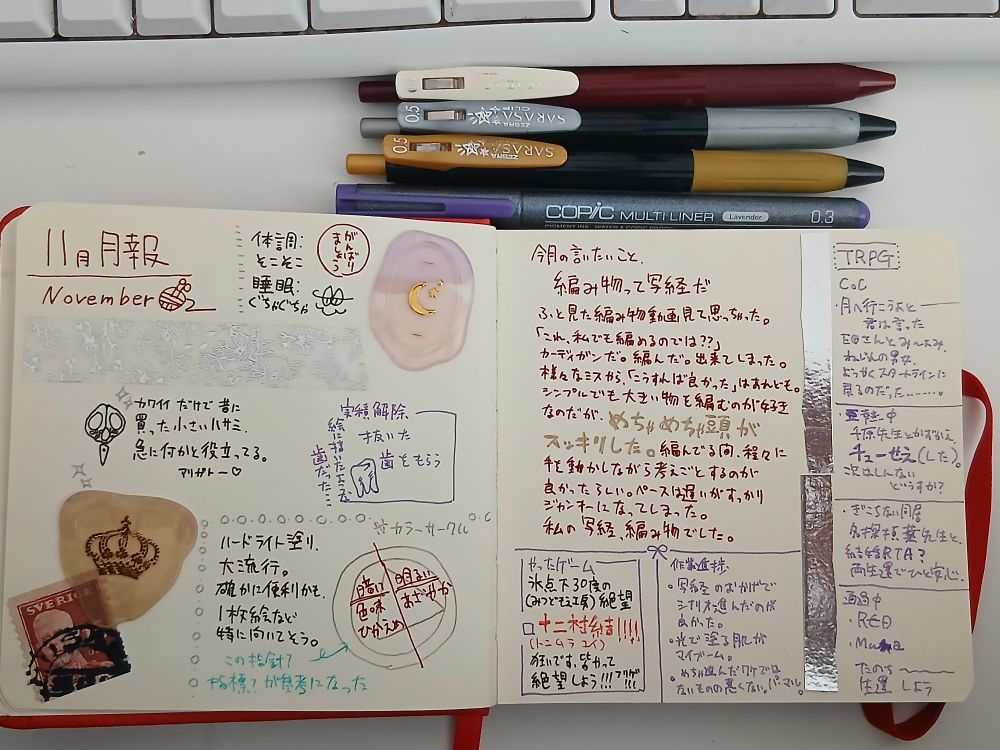 SARASA
CLIP
ZEBRA
0.5
SARASA
CLIP
ZEBRA
0.5
COPIC MULTI LINER Lavender 0.3
11月 月報
November
体調:
そこそこ
睡眠:
ぐちゃぐちゃ
がんばり
ましょう
カワイイ だけで 昔に
買った 小さいハサミ、
急に付かと役立ってる。
アリガトー♡
実績解除
抜いた
歯をもらう
絵に描いたような
歯だった…
SVERIGE
ハードライト塗り、
大流行。
確かに便利かも。
1枚絵など
特に向いてそう。
この指針?
指標?が参考になった
※カラーサークル
暗い
色味
ひかえめ
明るい
あざやか
今月の言いたいこと、
編み物って写経だ
ふと見た編み物動画見て思っちゃった。
「これ、私でも編めるのでは??」
カーディガンだ。編んだ。出来てしまった。
様々なミスから、「こうすれば良かった」はあれども。
シンプルでも大きい物を編むのが好き
なのだが、めちゃめちゃ頭が
スッキリした。編んでる間、程々に
手を動かしながら考えごとするのが
良かったらしい。ペースは遅いがすっかり
ジャンキーになってしまった。
私の写経、編み物でした。
やったゲーム
氷点下30度の
(みつどもえ工房) 絶望
十二村結!!!!
(トニムラ ユイ)
狂いです。皆やって
絶望しよう!!! フリゲ!!!
作業進捗
・写経のおかげで
シナリオ進んだのが
良かった。
・光で塗る肌が
マイブーム。
・めちゃ進んだワケでは
ないものの悪くない。パーマル。
TRPG
CoC
・月へ行こうよと
君は言った
ねじれの男女、
ようやくスタートラインに
戻るのだった………。
・亜軽中
チューぜえ(した)。
次はしんない
どうすか?
・ぎこちない同居
名探偵 葉先生と、
結婚RTA?
両生還でひと安心。
通過中
・RED
たのち〜
生還しよう